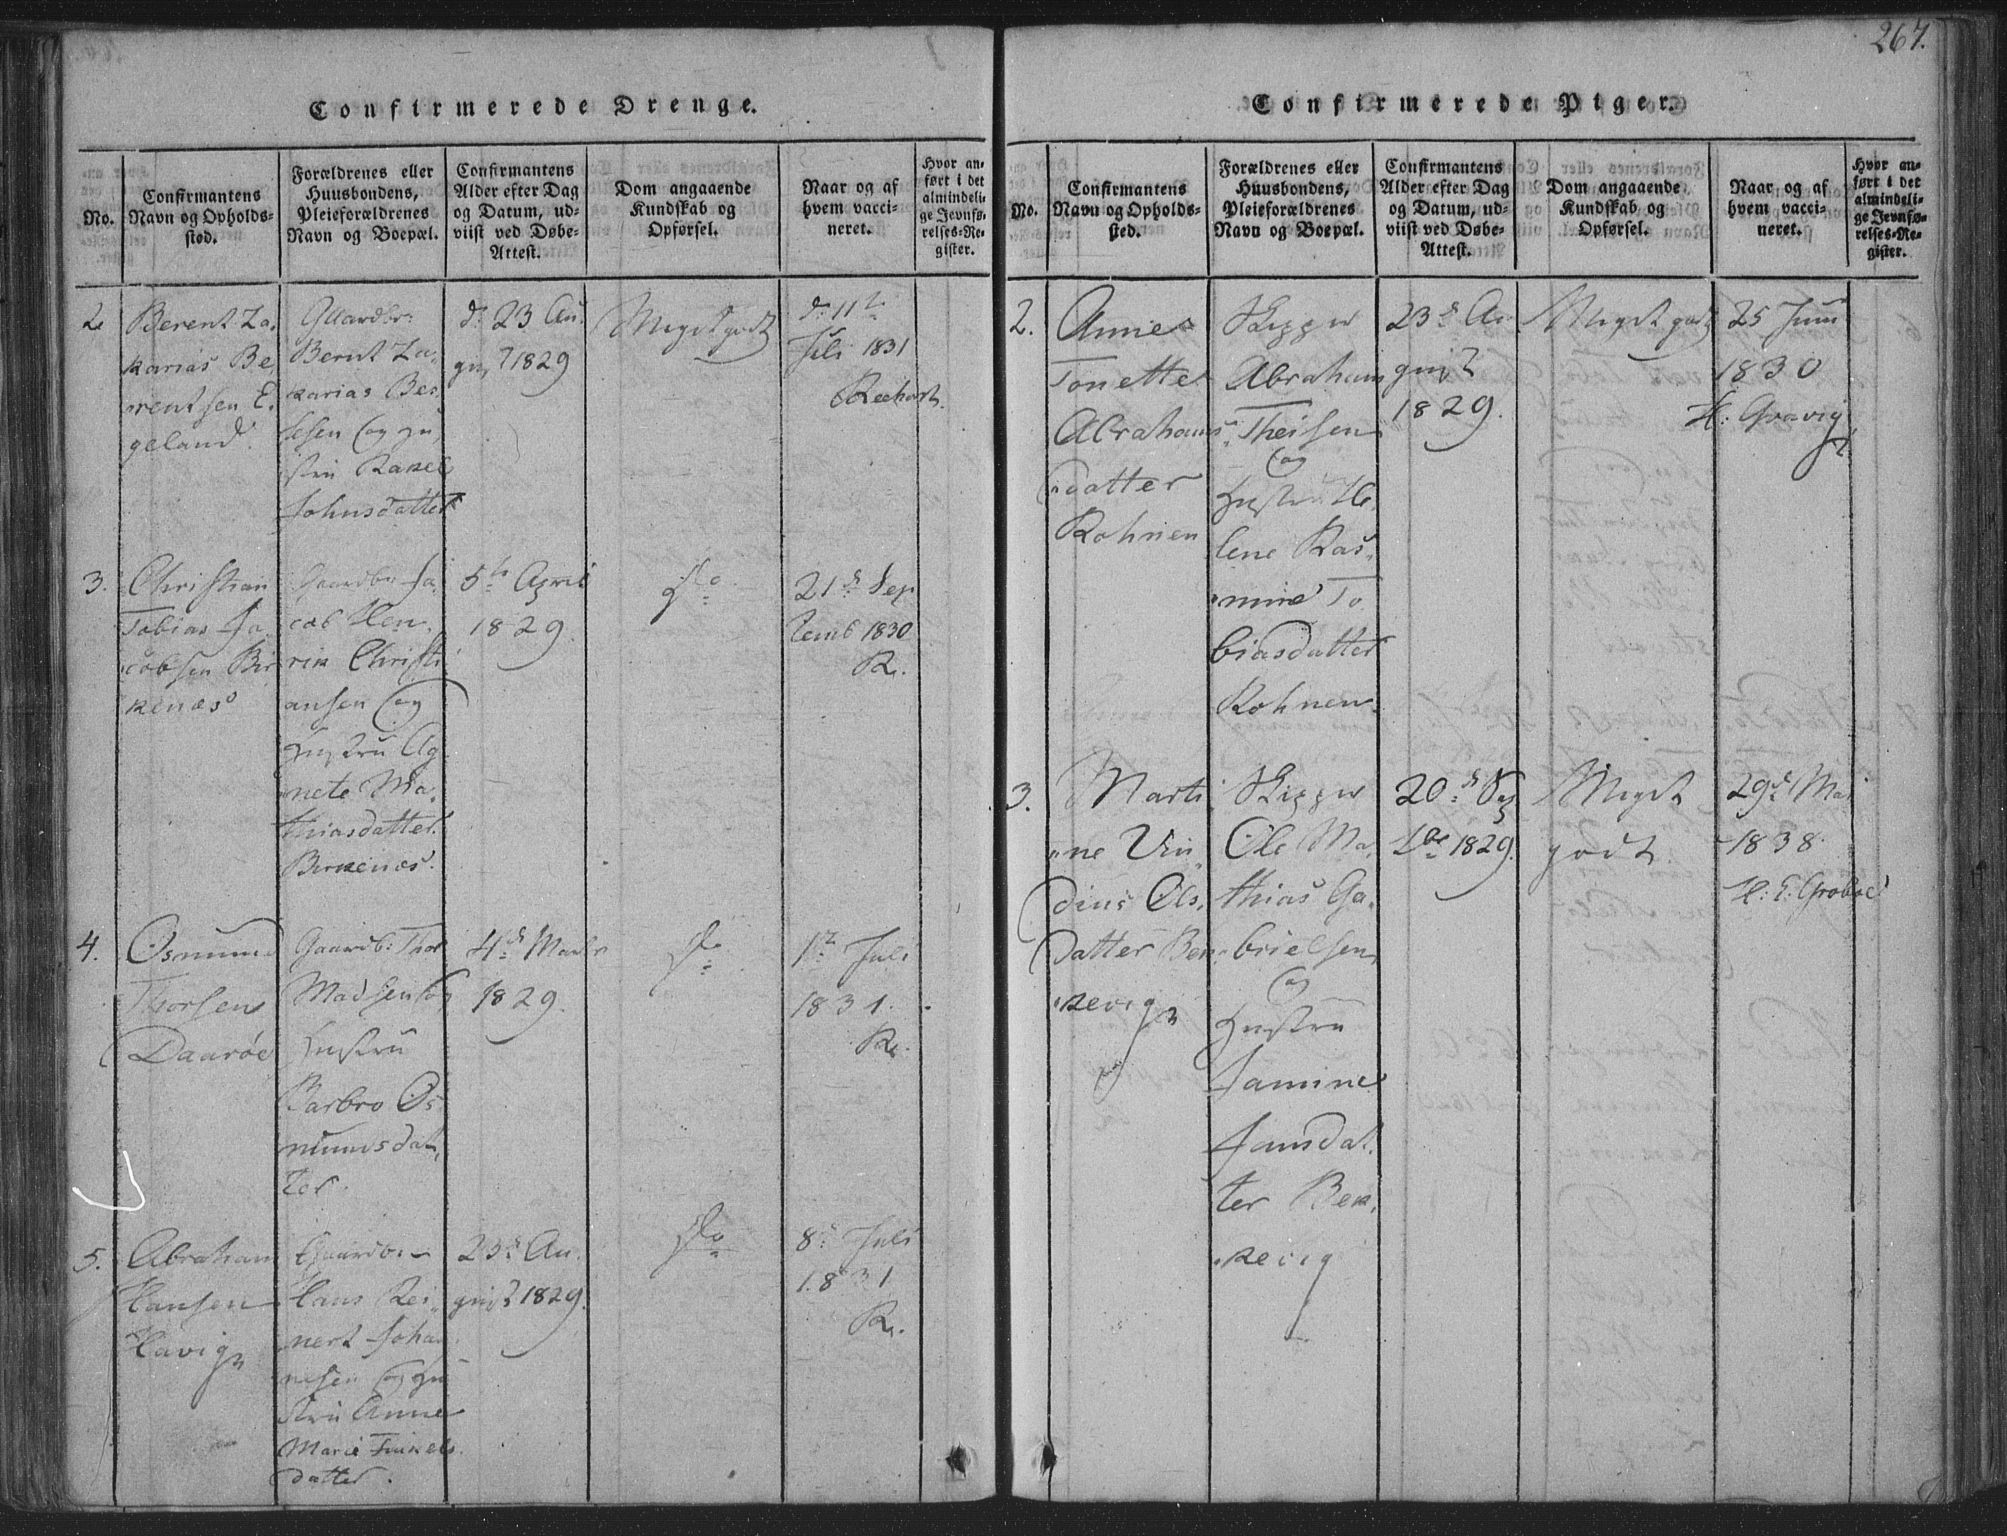 267.
Confirmerede Drenge.
No.
Confirmantens
Navn og Opholds-
sted.
Forældrenes eller
Huusbondens,
Pleieforældrenes
Navn og Boepæl.
Confirmantens
Alder efter Dag
og Datum, ud-
viist ved Døbe-
Attest.
Dom angaaende
Kundskab og
Opførsel.
Naar og af
hvem vacci-
neret.
Hvor an-
ført i det
almindeli-
ge Jevnfø-
relses-Re-
gister.
2
Berent Za,
karias Be,
rentsen E,
geland.
Gaardbr:
Bernt Za,
karias Ber
tesen og Hu,
stru Rakel
Johnsdatter
d: 23 Au,
gust 1829
Meget godt
d: 11te
Juli 1831
Reehorst.
3.
Christian
Tobias Ja
cobsen Bir
kenæs
Gaardbr Ja
cob Hen,
rik Christi
ansen og
Hustru Ag
nete Ma,
thiasdatter.
Birkenæs.
5te April
1829
do
21de Sep
temb 1830
R.
4.
Osmund
Thorsen
Daarøe
Gaardb: Thor
Madsen og
Hustru
Barbro Os
munds dat,
ter.
4de Marts
1829.
do
1te Juli
1831.
R.
5.
Abraham
Hansen
Havig
Gaardb:
Hans Rei,
nert Joha
nesen og Hu
stru Anne
Marie Tinkels
datter.
23de Au.
gust 1829.
do
8de Juli
1831
R.
Confirmerede Piger.
No.
Confirmantens
Navn og Opholds-
sted.
Forældrenes eller
Huusbondens,
Pleieforældrenes
Navn og Boepæl.
Confirmantens
Alder efter Dag
og Datum, ud-
viist ved Døbe-
Attest.
Dom angaaende
Kundskab og
Opførsel.
Naar og af
hvem vacci-
neret.
Hvor an-
ført i det
almindeli-
ge Jevnfø-
relses-Re-
gister.
2.
Anne
Tonette
Abrahams
datter
Rohnen
Skipper
Abraham
Theisen
og
Hustru He,
lene Ras,
mine To
biasdatter
Rohnen.
23de Au
gust
1829.
Meget godt
25 Juni
1830
H: Gravig
3.
Marti
ne Vin,
dine Ols,
datter Ben
kevig
Skipper
Ole Ma,
thias Ga,
brielsen
og
Hustru
Jamine
Jamsdat,
ter Ben,
kevig
20de Sep
tbr 1829.
Meget
godt
29de Mai
1838.
H: E: Groboe